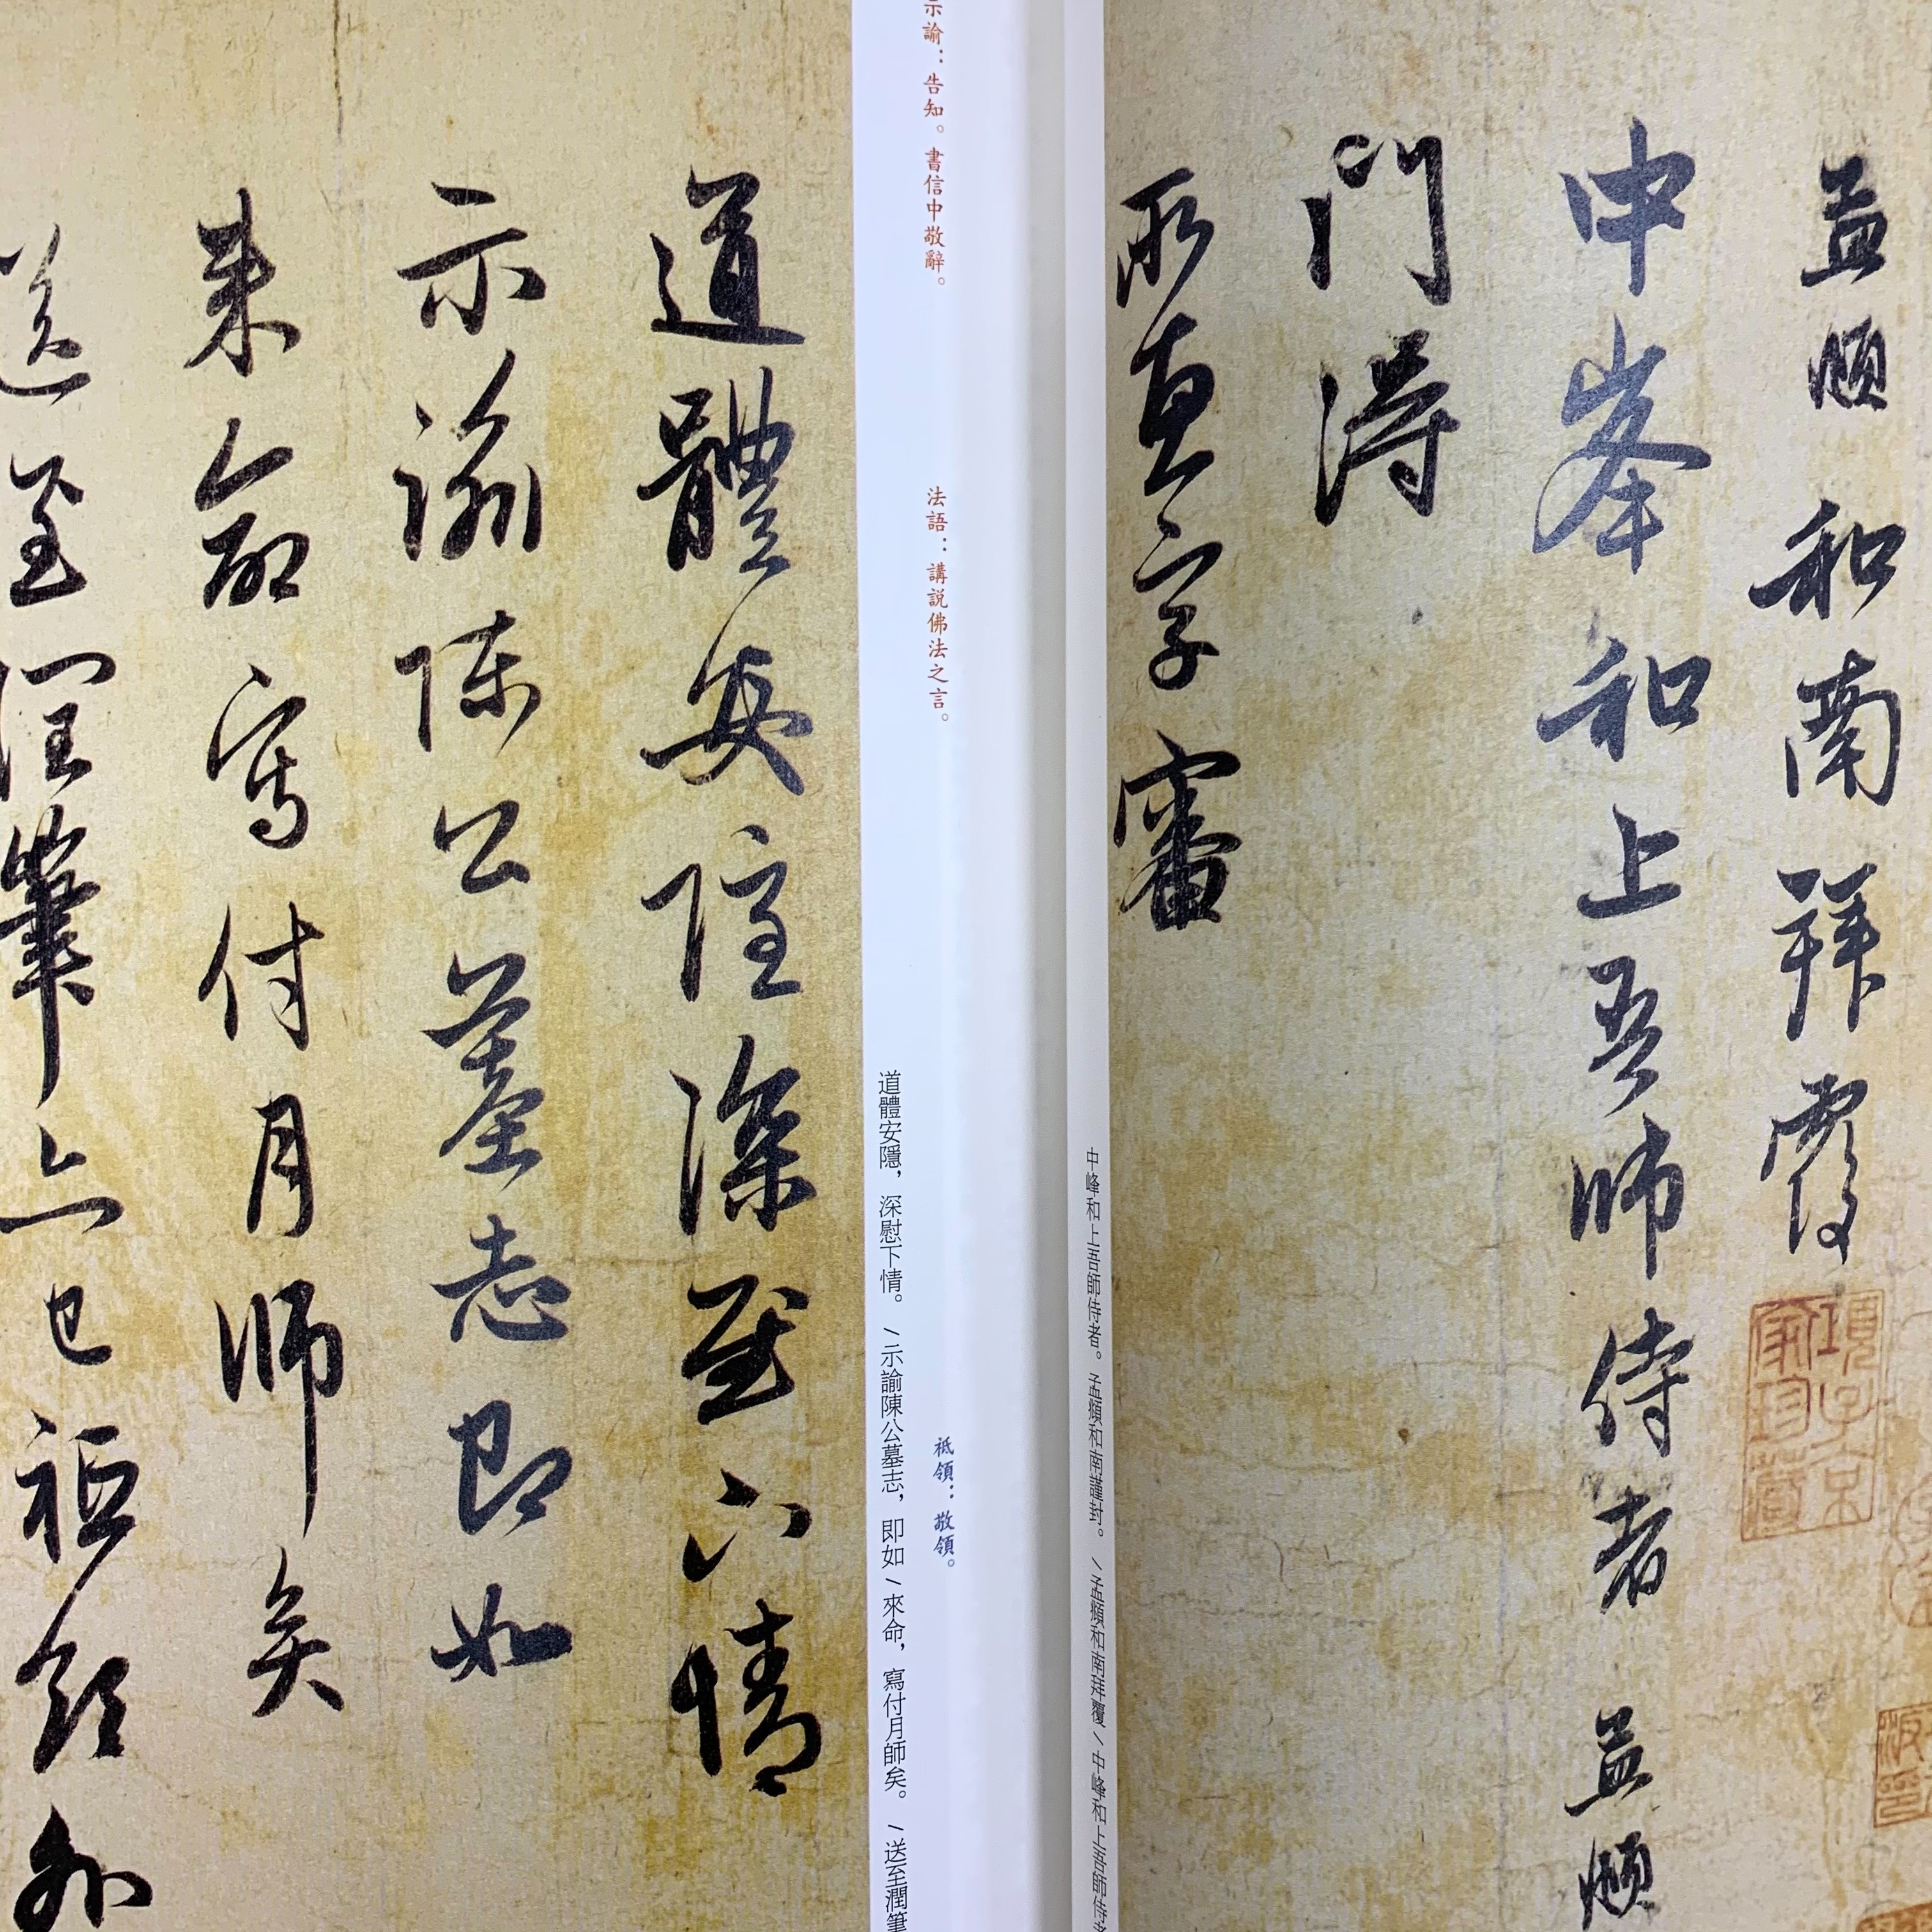 孟頫和南拜覆
中峯和上吾師侍者孟頫
門得
所惠字審
中峰和上吾師侍者。孟頫和南謹封。/孟頫和南拜覆/中峰和上吾師侍者
示諭：告知。書信中敬辭。
法語：講説佛法之言。
祗領：敬領。
道體安隱，深慰下情。/示諭陳公墓志，即如/來命，寫付月師矣。/送至潤筆
道體安隱深慰下情
示諭陳公墓志即如
来命寫付月師矣
送至潤筆亦已祗領外
項子京
家珍藏